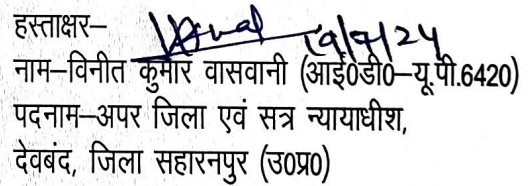 हस्ताक्षर–
नाम–विनीत कुमार वासवानी (आई0डी0–यू.पी.6420)
पदनाम–अपर जिला एवं सत्र न्यायाधीश,
देवबंद, जिला सहारनपुर (उ0प्र0)